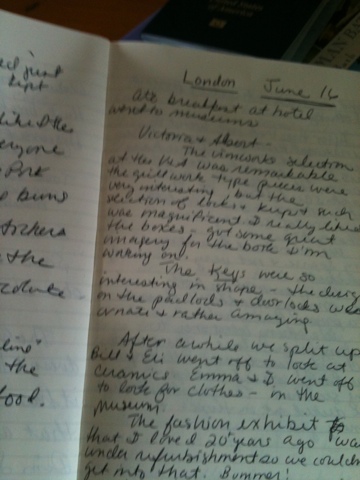 ed just
kept
like this
everyone
Pork
buns
the
"
the
food.
London June 16
ate breakfast at hotel
museums
Victoria & Albert -
The ironworks selection
at the V&A was remarkable
the grill work - type pieces were
very interesting, but the
selection of locks & keys & such
was magnificent. I really liked
the boxes - got some great
imagery for the book I'm
working on.
The Keys were so
interesting in shape - the design
on the padlocks & door locks were
ornate & rather amazing.
After awhile we split up
Bill & Eii went off to look at
ceramics. Emma & I went off
to look for clothes - in the
museum.
The fashion exhibit
that I loved 20 years ago was
under refurbishment so we couldn't
get into that. Bummer!